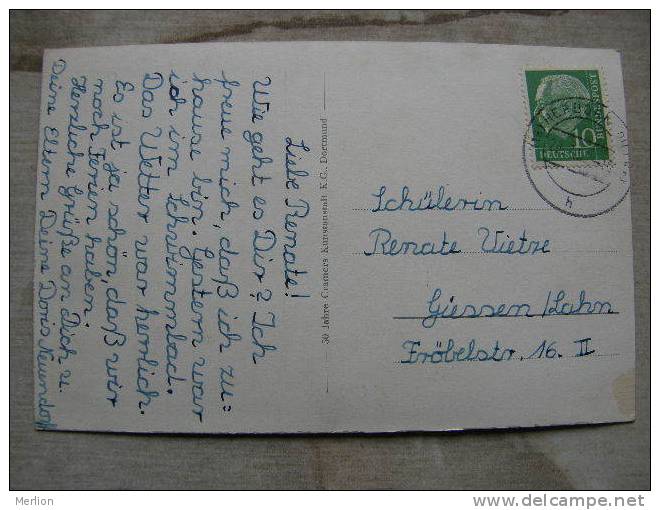 Liebe Renate!
Wie geht es Dir? Ich
freue mich, daß ich zu=
hause bin. Gestern war
ich im Schwimmbad.
Das Wetter war herrlich.
Es ist ja schön, daß wir
noch Ferien haben.
Herzliche Grüße an Dich u.
Deine Eltern Deine Doris Neundorf
50 Jahre Cramers Kunstanstalt K.G., Dortmund
10
DEUTSCHE
BUNDESPOST
h
Schülerin
Renate Vietze
Giessen/Lahn
Fröbelstr. 16. II
Merlion
delcampe.net